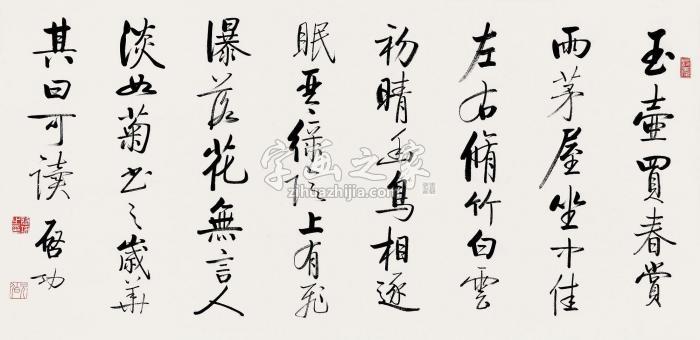 玉壺買春賞
雨茅屋坐中佳
左右脩竹白雲
初晴幽鳥相逐
眠琴綠陰上有飛
瀑落花無言人
淡如菊書之歲華
其曰可讀 啓功
字画之家
zihuazhijia.com